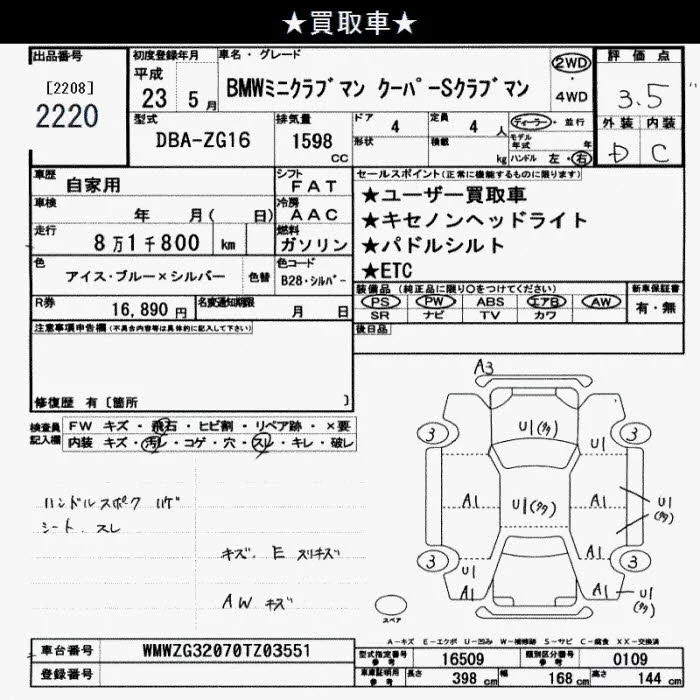 ★買取車★
出品番号 初度登録年月 車名・グレード 2WD 評価点
[2208] 平成 BMWミニクラブマン クーパーSクラブマン ・
2220 23 5月 4WD 3.5
型式 排気量 ドア 4 定員 4人 ディーラー・並行 外装 内装
DBA-ZG16 1598 cc 形状 積載 kg モデル年式 年 D C
ハンドル 左・右
車歴 自家用 シフト FAT セールスポイント(正常に機能するものに限ります)
車検 年 月( 日) 冷房 AAC ★ユーザー買取車
★キセノンヘッドライト
走行 8万1千800 km 燃料 ガソリン ★パドルシルト
色 アイス・ブルー×シルバー 色替 色コード B28・シルバー ★ETC
R券 16,890円 名変通知期限 月 日 装備品(純正品に限り○をつけてください) 新車保証書
PS PW ABS エアB AW 有・無
SR ナビ TV カワ
注意事項申告欄(不具合内容等は具体的に記入して下さい) 後日品
修復歴 有〔箇所 〕
検査員記入欄 FW キズ・飛石・ヒビ割・リペア跡・×要
内装 キズ・汚レ・コゲ・穴・スレ・キレ・破レ
ハンドルスポーク ハゲ
シート、スレ
キズ、E スリキズ
AW キズ
A3
3 3
U1(タタ) U1
A1 U1(タタ) A1 U1(タタ)
3 3
U1 A1
A1 A1 U1(タタ)
スペア
A-キズ E-エクボ U-凹み W-補修跡 S-サビ C-腐食 XX-交換済
車台番号 WMWZG32070TZ03551 型式指定番号 参考 16509 類別区分番号 参考 0109
登録番号 車庫証明用 参考 長さ 398cm 幅 168cm 高さ 144cm